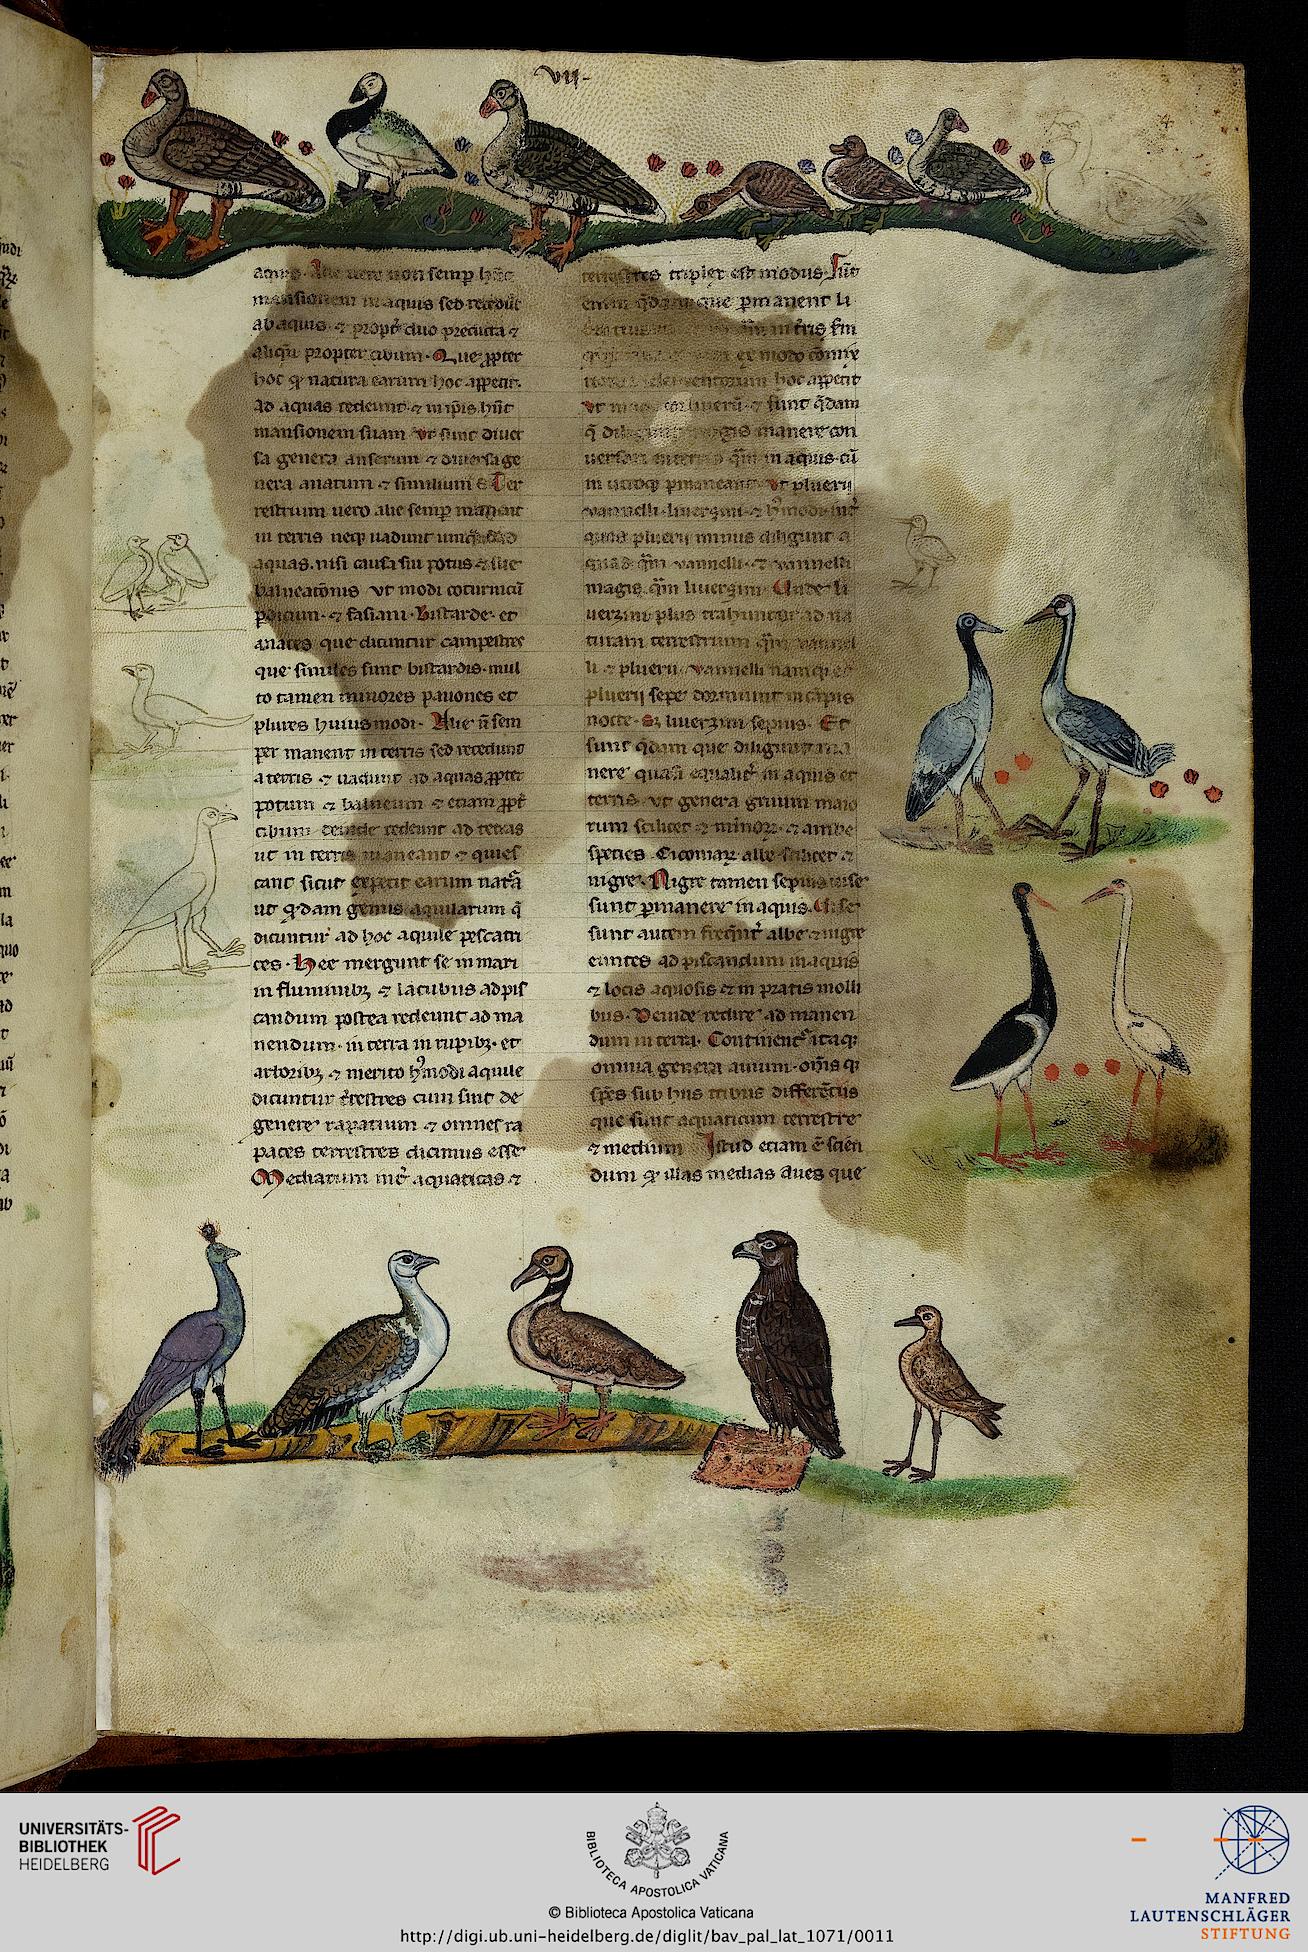 vij.
aquis. Aliẽ vero non semp hñt
mansionem in aquis sed recedũt
ab aquis ⁊ propt̉ duo precidua ⁊
aliqñ propter cibum. Que ꝓpter
hoc ꝙ natura earum hoc appetit.
ad aquas redeunt. ⁊ in ip̃is hñt
mansionem suam vt sunt diuer
sa genera anserum ⁊ diuersa ge
nera anatum ⁊ similium Ter
restrium uero alie semp manent
in terris neqꝫ uadunt
aquas. nisi causa sui potus ⁊ siue
balneationis vt modi coturnicũ
ꝑdicum. ⁊ fasiani. Bistarde. et
anates que dicuntur campestres
que similes sunt bistardis. mul
to tamen minores pauones et
plures huiusmodi. Aue ñ sem
per manent in terris sed recedunt
a terris ⁊ uadunt ad aquas ꝓpter
potum ⁊ balneum ⁊ etiam ꝓpt̉
cibum deinde redeunt ad terras
ut in terris maneant ⁊ quies
cant sicut expetit earum natã
ut qͥdam genus aquilarum q̃
dicuntur ad hoc aquile pescatri
ces. Hee mergunt se in mari
in fluminibꝫ ⁊ lacubus ad pis
candum postea redeunt ad ma
nendum. in terra in rupibꝫ. et
arboribꝫ ⁊ merito hꝰmodi aquile
dicuntur t̃restres cum sint de
genere rapatium ⁊ omnes ra
paces terrestres dicimus esse
Mediarum int̉ aquaticas ⁊
terrestres triplex est modus. Sũt
enim q̃dam que ꝑmanent li
in t̃ris fm
ex modo com̃ix
hoc appetit
vt ⁊ sunt q̃dam
q̃ manere con
uersari in terris qͣm in aquis. cũ
in utroqꝫ ꝑmaneant. vt pluerij
vannelli. liuerzini. ⁊ hꝰmodi. int̉
quas pluerij minus diligunt a
quãd qͣm vannelli. ⁊ vannelli
magis qͣm liuerzini. Unde li
uerzini plus trahuntur ad na
turam terrestrium qͣm vannel
li ⁊ pluerij vannelli namqꝫ et
pluerij sepe dormiunt in cãpis
nocte. ⁊ liuerzini sepius. Et
sunt q̃dam que diligunt ma
nere quasi equalit̉ in aquis et
terris. vt genera gruum maio
rum scilicet ⁊ minoꝝ. ⁊ ambe
species. Ciconiaꝝ albe scilicet ⁊
nigre. Nigre tamen sepius uise
sunt ꝑmanere in aquis. Uise
sunt autem freqñt̉ albe ⁊ nigre
euntes ad piscandum in aquis
⁊ locis aquosis ⁊ in pratis molli
bus. Deinde redire ad manen
dum in terra. Continent̉ itaqꝫ
omnia genera auium. om̃is qꝫ
sp̃es sub hiis tribus differẽtiis
que sunt aquaticum terrestre
⁊ medium Istud etiam ẽ scien
dum ꝙ illas medias aues que
UNIVERSITÄTS-
BIBLIOTHEK
HEIDELBERG
BIBLIOTECA APOSTOLICA VATICANA
© Biblioteca Apostolica Vaticana
http://digi.ub.uni-heidelberg.de/diglit/bav_pal_lat_1071/0011
MANFRED
LAUTENSCHLÄGER
STIFTUNG